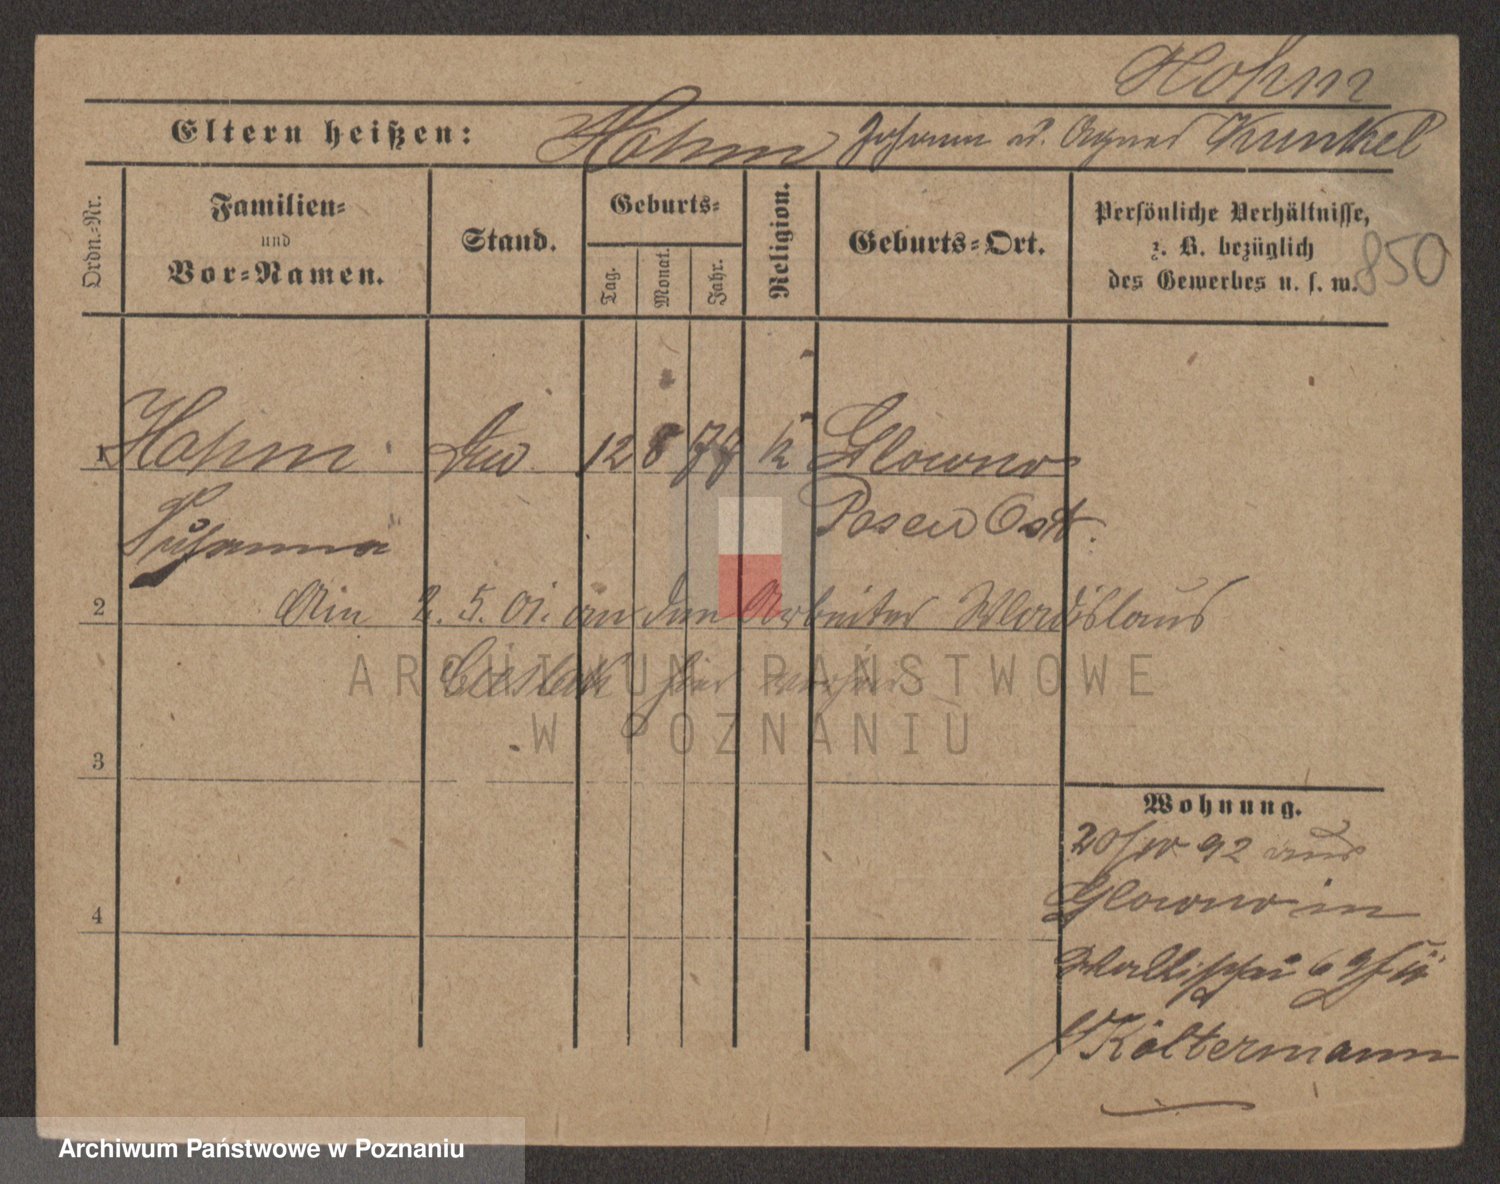 Hohm
Eltern heißen: Hohm Johann u. Agnes Kunkel
Ordn.-Nr.
Familien-
und
Vor-Namen.
Stand.
Geburts-
Tag.
Monat.
Jahr.
Religion.
Geburts-Ort.
Persönliche Verhältnisse,
z. B. bezüglich
des Gewerbes u. s. w.
850
1 Hohm 12 8 77 K Glowno
Susanna Posen Ost.
2 Am 2. 5. 01. an den Arbeiter Wladislaus
Cieslak hier
ARCHIWUM PAŃSTWOWE
W POZNANIU
3
Wohnung.
20/IV 92 aus
Glowno in
4
Wallischei
Koltermann
Archiwum Państwowe w Poznaniu